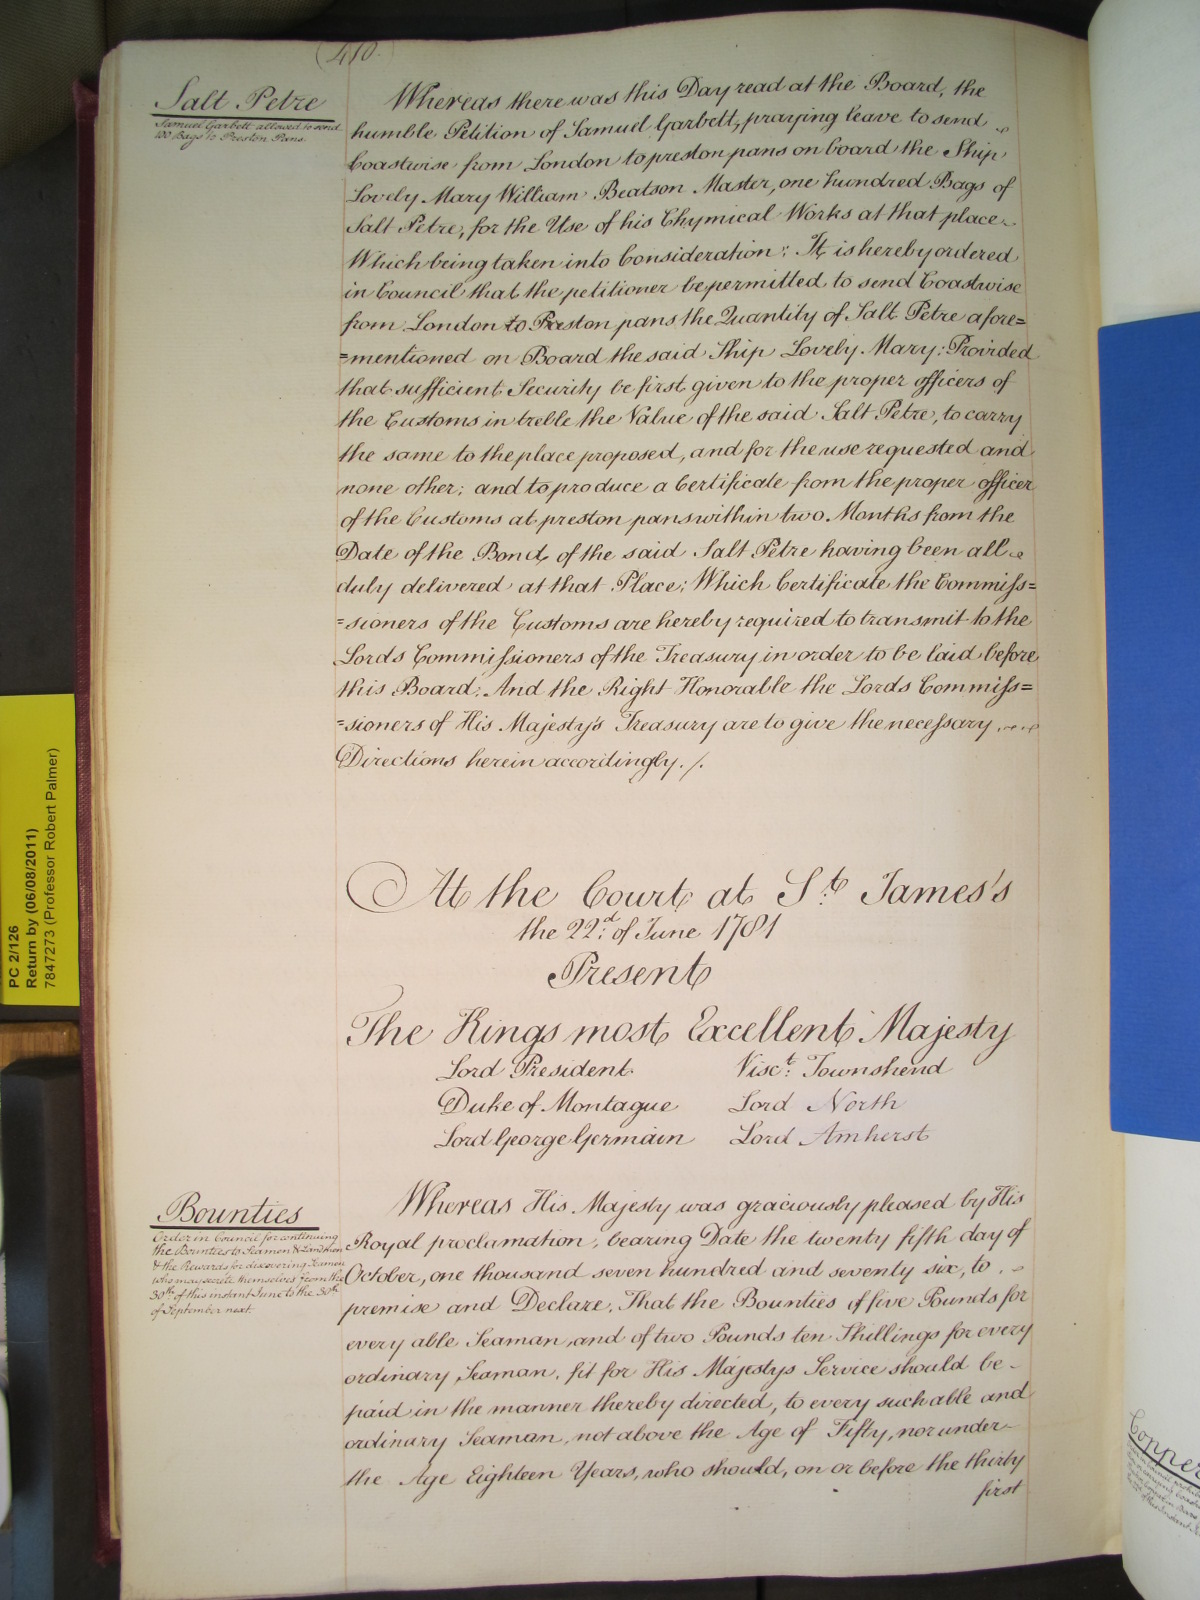 (410)
Salt Petre
Samuel Garbett allowed to send
100 Bags to Preston Pans.
Whereas there was this Day read at the Board, the
humble Petition of Samuel Garbett, praying leave to send
Coastwise from London to preston pans on board the Ship
Lovely Mary William Beatson Master, one hundred Bags of
Salt Petre, for the Use of his Chymical Works at that place
Which being taken into Consideration; It is hereby ordered
in Council that the petitioner be permitted to send Coastwise
from London to Preston pans the Quantity of Salt Petre afore=
=mentioned on Board the said Ship Lovely Mary; Provided
that sufficient Security be first given to the proper officers of
the Customs in treble the Value of the said Salt Petre, to carry
the same to the place proposed, and for the use requested and
none other; and to produce a Certificate from the proper officer
of the Customs at preston pans within two Months from the
Date of the Bond, of the said Salt Petre having been all
duly delivered at that Place; Which Certificate the Commiss=
=sioners of the Customs are hereby required to transmit to the
Lords Commissioners of the Treasury in order to be laid before
this Board. And the Right Honorable the Lords Commiss=
=sioners of His Majesty's Treasury are to give the necessary
Directions herein accordingly. /.
At the Court at St. James's
the 22d. of June 1781
Present
The Kings most Excellent Majesty
Lord President Visct. Townshend
Duke of Montague Lord North
Lord George Germain Lord Amherst
Bounties
Order in Council for continuing
the Bounties to Seamen & Landmen
& the Rewards for discovering Seamen
who may secrete themselves from the
30th of this instant June to the 30th
of September next.
Whereas His Majesty was graciously pleased by His
Royal proclamation, bearing Date the twenty fifth day of
October, one thousand seven hundred and seventy six, to
premise and Declare, That the Bounties of five Pounds for
every able Seaman, and of two Pounds ten Shillings for every
ordinary Seaman, fit for His Majestys Service should be
paid in the manner thereby directed, to every such able and
ordinary Seaman, not above the Age of Fifty, nor under
the Age Eighteen Years, who should, on or before the thirty
first
PC 2/126
Return by (06/08/2011)
7847273 (Professor Robert Palmer)
Copper